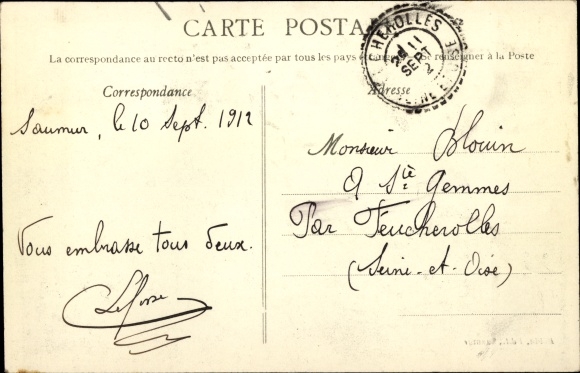 CARTE POSTA
La correspondance au recto n'est pas acceptée par tous les pays se renseigner à la Poste
Correspondance
Adresse
CHEROLLES
11
SEPT
Saumur, le 10 Sept. 1912
Vous embrasse tous deux.
Monsieur Blouin
à Ste Gemmes
Par Feucherolles
(Seine-et-Oise)